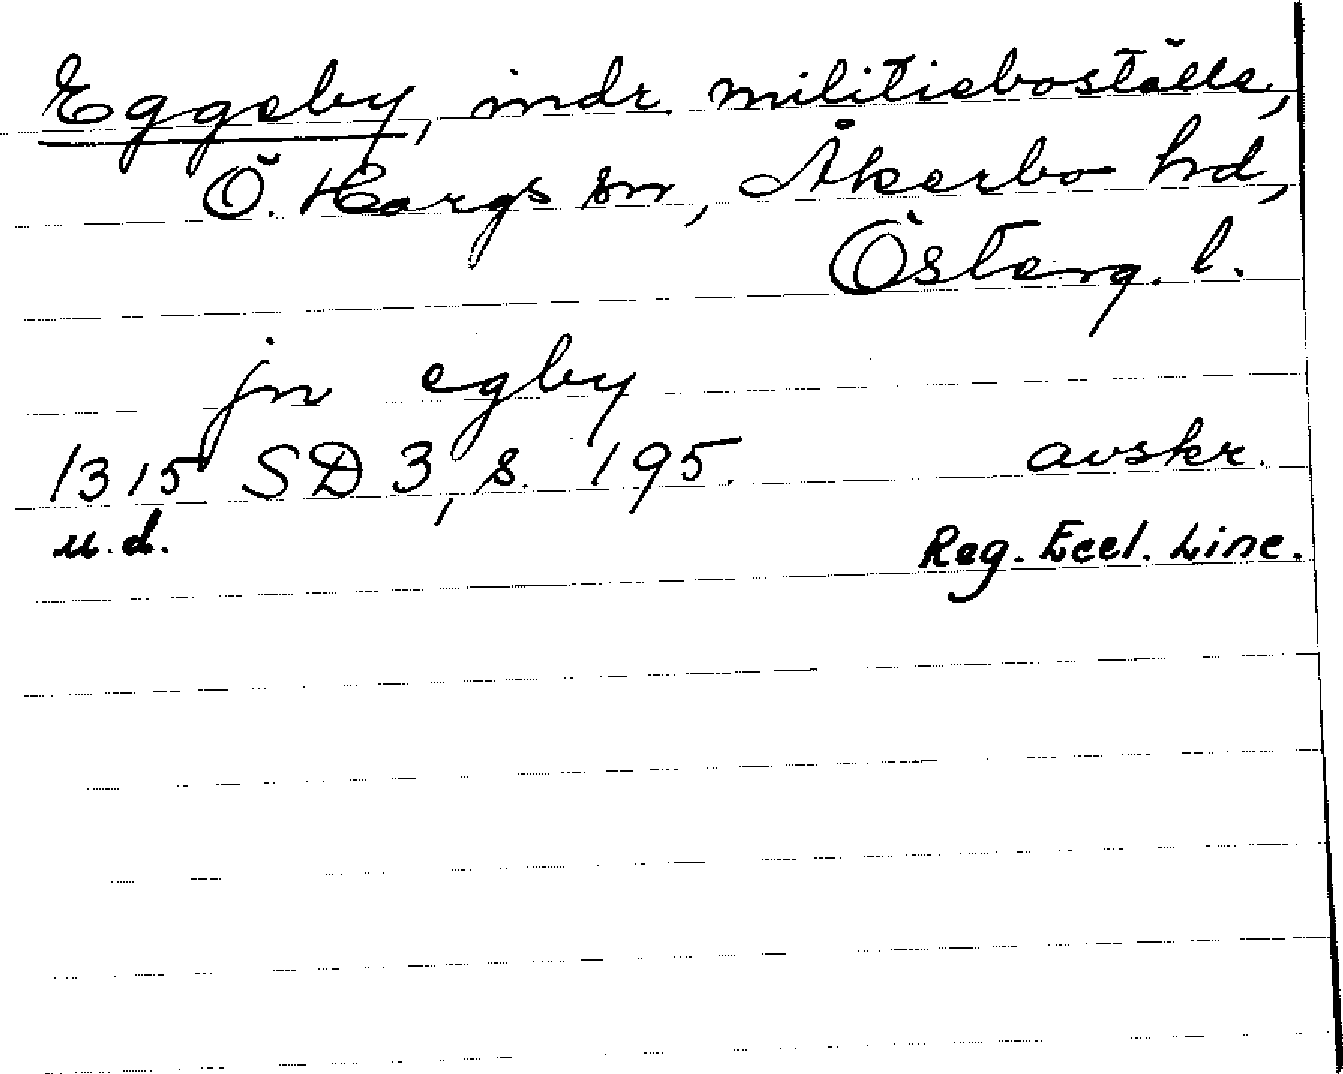 Eggeby, indr militieboställe,
Ö. Hargs sn, Åkerbo hd,
Österg. l.
jn egby
1315 SD 3, s. 195. avskr.
u.d. Reg. Eccl. Linc.